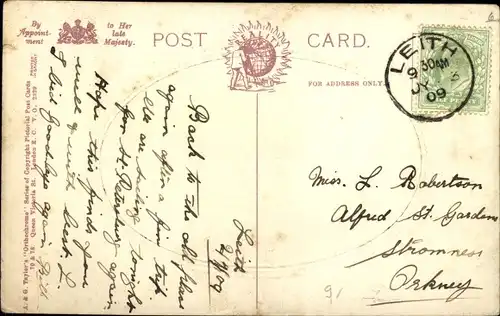 By
Appoint-
ment
to Her
late
Majesty.
POST CARD.
FOR ADDRESS ONLY.
LEITH
30AM
09
Leith
2/7/09
Back to the old place
again after a fine trip.
We are sailing tonight
for St Petersburg again
Hope this finds you
well & with best L.
I bid Goodbye again
Miss. L. Robertson
Alfred St. Gardens
Stromness
Orkney
9/
A. & G. Taylor's "Orthochrome" Series of Copyright Pictorial Post Cards
70 & 78 Queen Victoria St. London E.C.